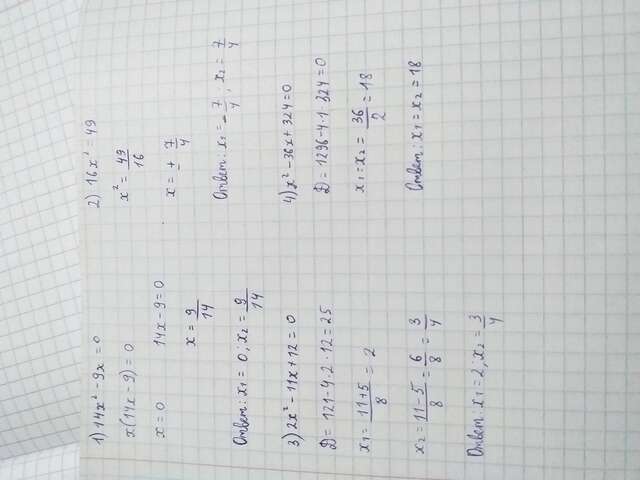 1) 14x² - 9x = 0
x(14x - 9) = 0
x = 0 14x - 9 = 0
x = 9/14
Ответ: x₁ = 0; x₂ = 9/14
2) 16x² = 49
x² = 49/16
x = ± 7/4
Ответ: x₁ = -7/4; x₂ = 7/4
3) 2x² - 11x + 12 = 0
D = 121 - 4·2·12 = 25
x₁ = (11+5)/8 = 2
x₂ = (11-5)/8 = 6/8 = 3/4
Ответ: x₁ = 2; x₂ = 3/4
4) x² - 36x + 324 = 0
D = 1296 - 4·1·324 = 0
x₁ = x₂ = 36/2 = 18
Ответ: x₁ = x₂ = 18